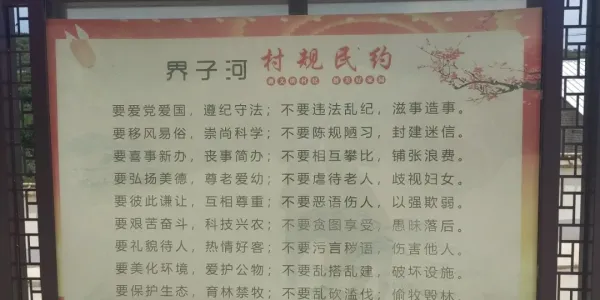 界子河 村规民约
要爱党爱国，遵纪守法；不要违法乱纪，滋事造事。
要移风易俗，崇尚科学；不要陈规陋习，封建迷信。
要喜事新办，丧事简办；不要相互攀比，铺张浪费。
要弘扬美德，尊老爱幼；不要虐待老人，歧视妇女。
要彼此谦让，互相尊重；不要恶语伤人，以强欺弱。
要艰苦奋斗，科技兴农；不要贪图享受，愚昧落后。
要礼貌待人，热情好客；不要污言秽语，伤害他人。
要美化环境，爱护公物；不要乱搭乱建，破坏设施。
要保护生态，育林禁牧；不要乱砍滥伐；偷牧毁林